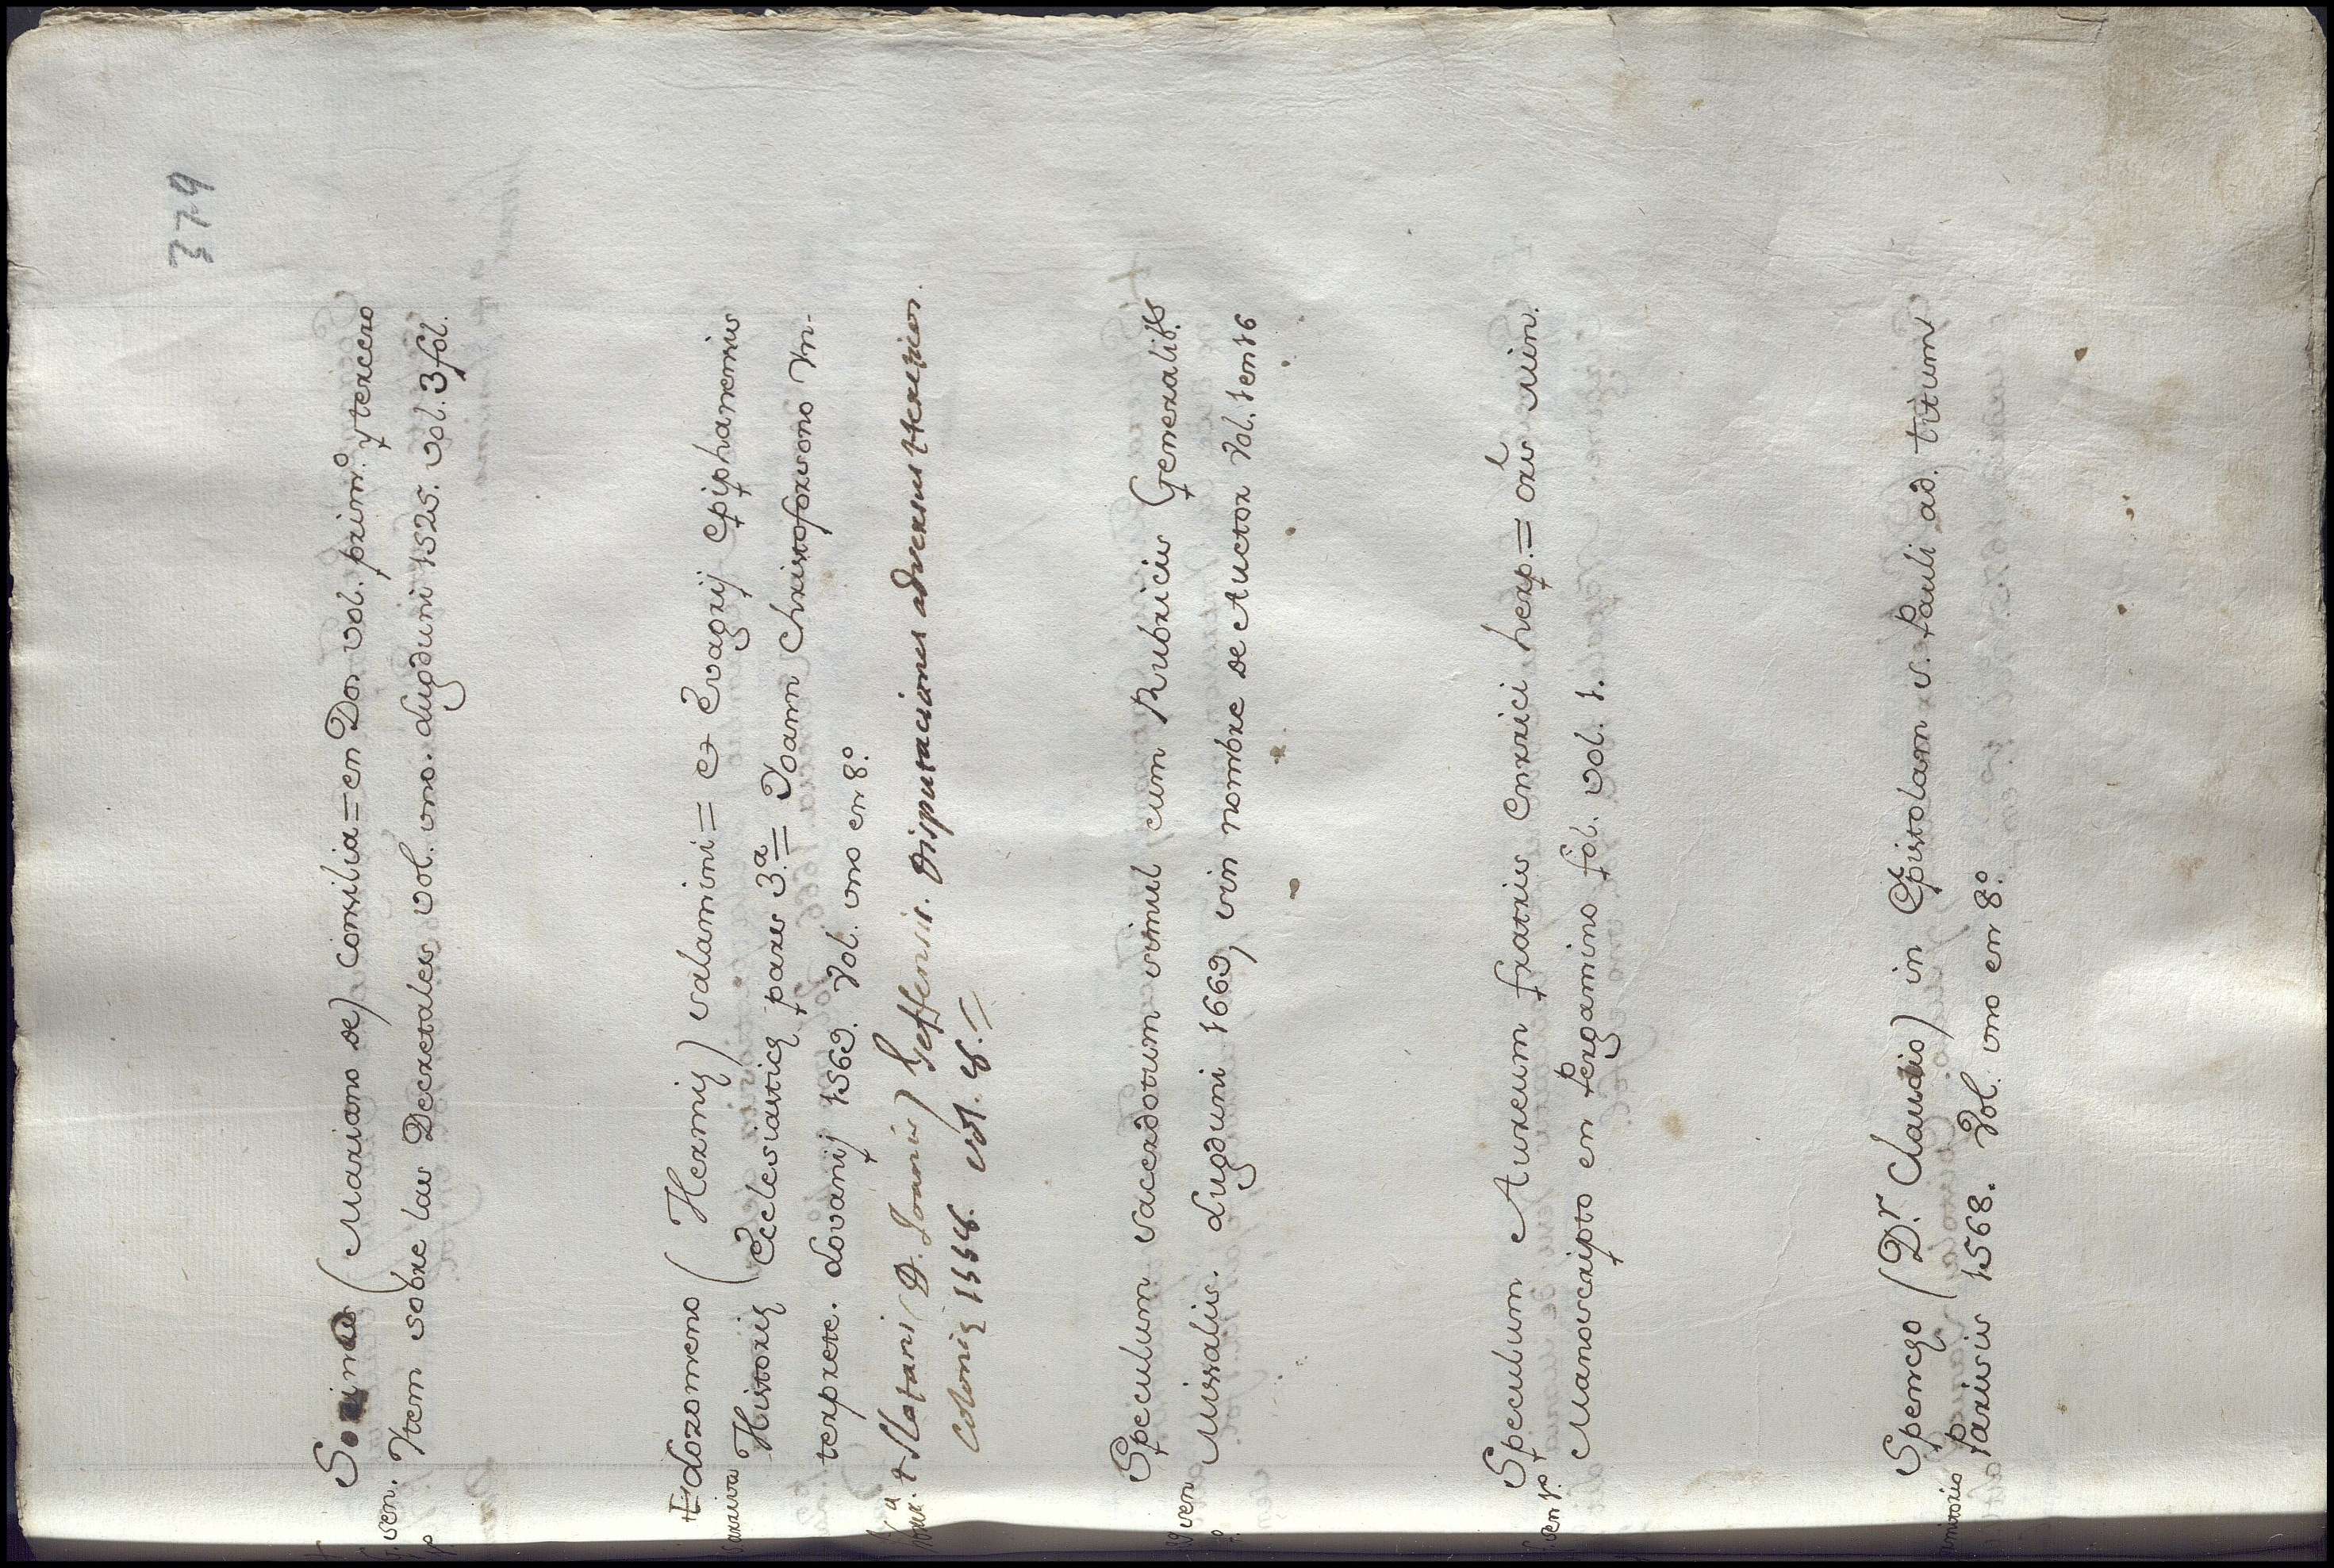 379
Socino (Mariano de) Consilia = en Dos vol. prim.º y tercero
Item sobre las Decretales vol. uno. Lugduni 1525. vol. 3 fol.
sen.
+ dozomeno (Hermię) salamini = et Evagrij Epiphanensis
Historię Ecclesiasticę pars 3.ª = Yoann Christoforsono In-
terprete. Lovanij 1569. Vol. uno en 8.º
+ Slotani (D. Joannis) Geffensis. Disputationes adversus Hereticos.
Colonię 1558. vol. 8. =
Speculum sacerdotum simul cum Rubricis Generalibs
Missalis. Lugduni 1669, sin nombre de Auctor Vol. 1 en 16
sen
Speculum Aureum fratris Enrrici herp. = ors min.
Manoscripto en Pergamino fol. vol. 1.
sen
Spencęo (D.r Claudio) in Epistolam s. Pauli ad. titum
Parisis 1568. Vol. uno en 8.º